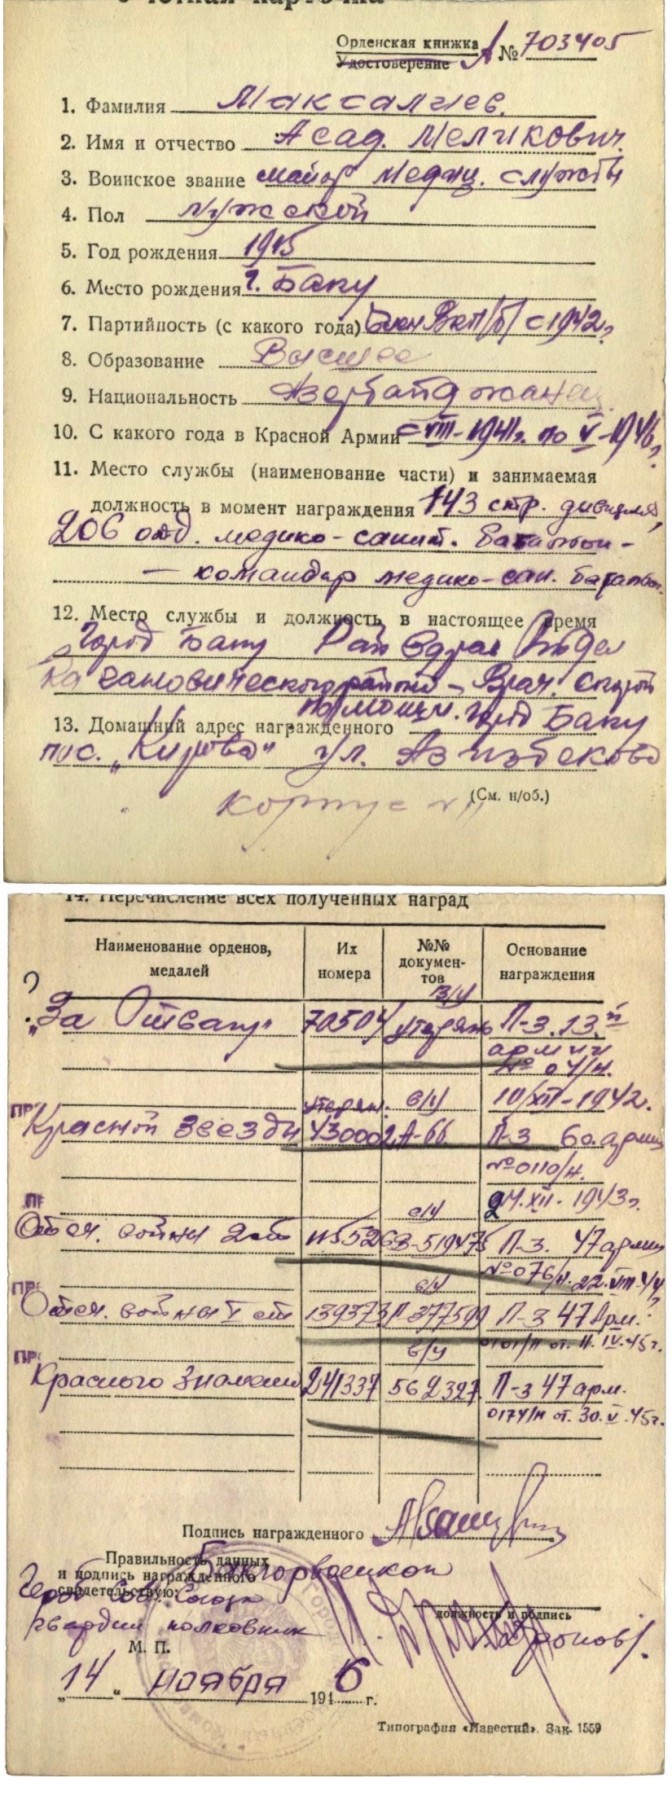 Учетная карточка
Орденская книжка А № 703405
Удостоверение
1. Фамилия Максалиев.
2. Имя и отчество Асад. Меликович.
3. Воинское звание майор медиц. службы
4. Пол мужской
5. Год рождения 1915
6. Место рождения г. Баку
7. Партийность (с какого года) Член ВКП/б/ с 1942г.
8. Образование Высшее
9. Национальность Азербайджанец
10. С какого года в Красной Армии с VIII-1941г. по V-1946г.
11. Место службы (наименование части) и занимаемая
должность в момент награждения 143 стр. дивизия,
206 отд. медико-санит. батальон -
- командир медико-сан. батальон.
12. Место службы и должность в настоящее время
Город Баку Рай Здрав Отдел
Кагановического района - Врач. скорой
помощи.
13. Домашний адрес награжденного город Баку
пос. „Кирова" ул. Азизбекова
корпус
(См. н/об.)
14. Перечисление всех полученных наград
Наименование орденов, медалей Их номера №№ документов Основание награждения
?
„За Отвагу" 70504 в/у утерян П-з. 13й
армии
№ 04/н.
утерян. в/у 10/XII-1942.
ПР Красной Звезды 430002 А-66 П-з 60. армии
№ 0110/н.
ПР в/у 24.XII-1943г.
Отеч. войны 2 ст 115526 В-519475 П-з. 47 армии
ПР в/у № 076/н. 22.VIII.44
Отеч. войны I ст 139373 П-377599 П-з 47 Арм.
ПР в/у 0101/н от. 11.IV.45г.
Красного Знамени 241337 562327 П-з 47 арм.
0174/н от. 30.V.45г.
Подпись награжденного
Правильность данных
и подпись награжденного
свидетельствую: Бакгорвоенком
Герой Сов. Союза
гвардии полковник
должность и подпись
М. П.
„14" ноября 1946 г.
Типография «Известий». Зак. 1559